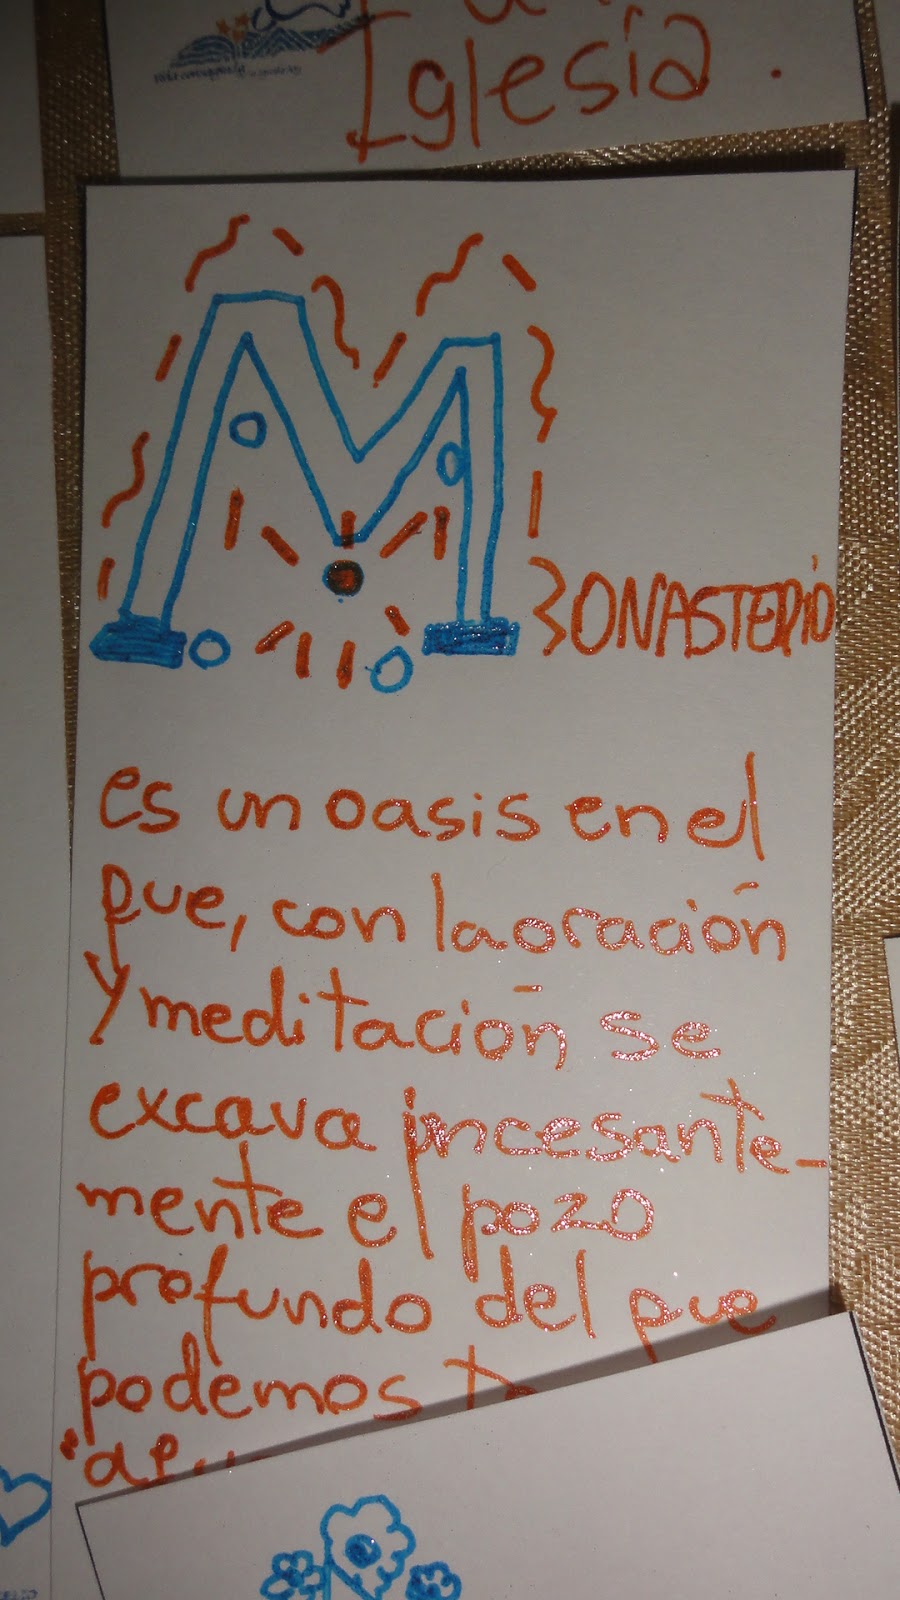 Iglesia.
M
ONASTERIO
es un oasis en el
que, con la oración
y meditación se
excava incesante-
mente el pozo
profundo del que
podemos